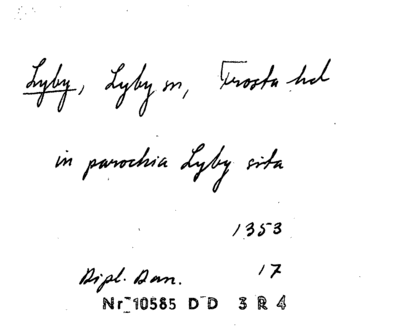 Lyby, Lyby sn, Frosta hd
in parochia Lyby sita
1353
Dipl. Dan. 17
Nr 10585 D D 3 R 4